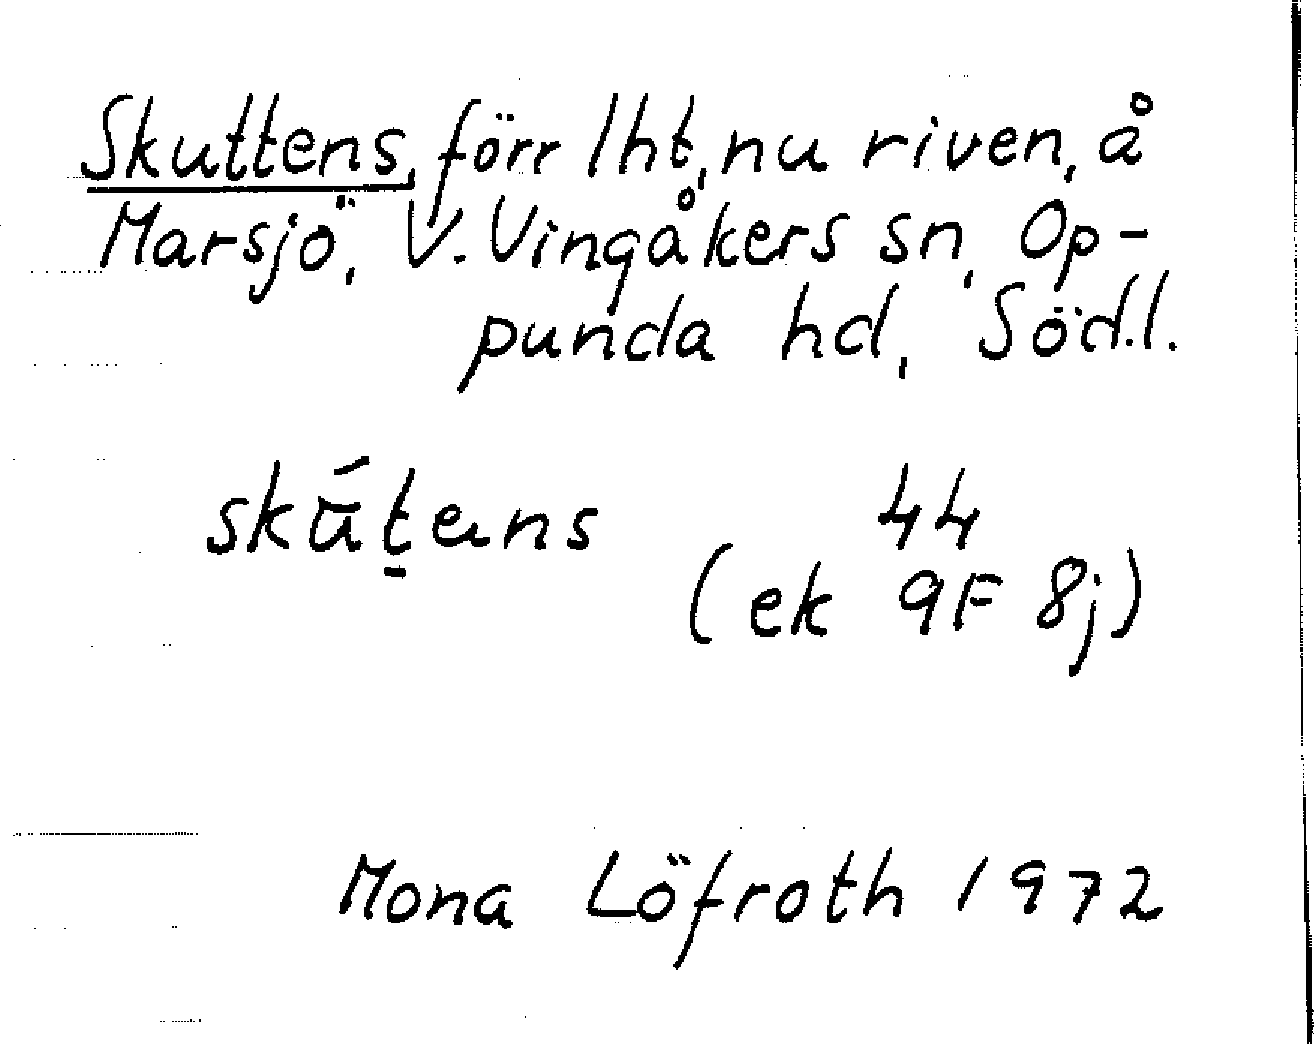 Skuttens, förr lht, nu riven, å
Marsjö, V. Vingåkers sn, Op-
punda hd, Södl.
skútens 44
(ek 9F 8j)
Mona Löfroth 1972